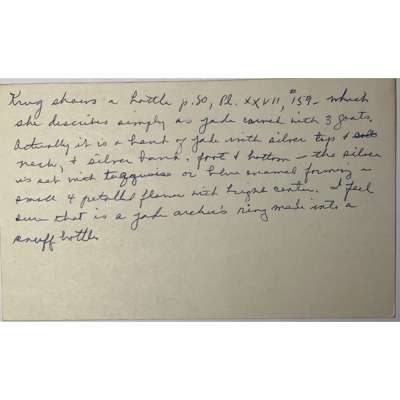 Krug shows a bottle p. 50, Pl. XXVII, #159 - which
she describes simply as jade carved with 3 goats.
Actually it is a band of jade with silver top &
neck, & silver band. foot & bottom - the silver
is set with turquoise or blue enamel forming a
small 4 petalled flower with bright center. I feel
sure that is a jade archer's ring made into a
snuff bottle